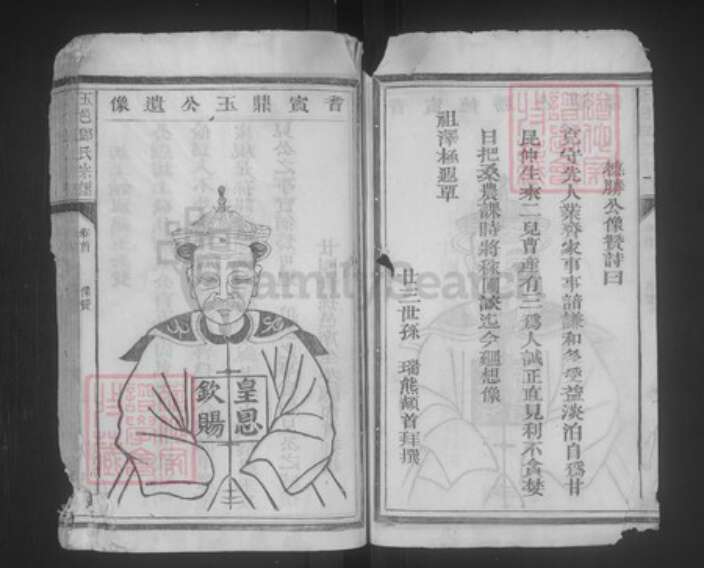 勝公像贊詩曰
克守先人業齊家事事諳謙和多受益淡泊自爲甘
昆仲生來二兒曹產有三爲人誠正直見利不貪婪
日把桑農課時將稼圃談迄今迴想像
祖澤極遐覃
廿三世孫 瑞熊頓首拜撰
耆賓鼎玉公遺像
皇恩
欽賜
玉邑 氏宗譜
卷首
像贊
FamilySearch